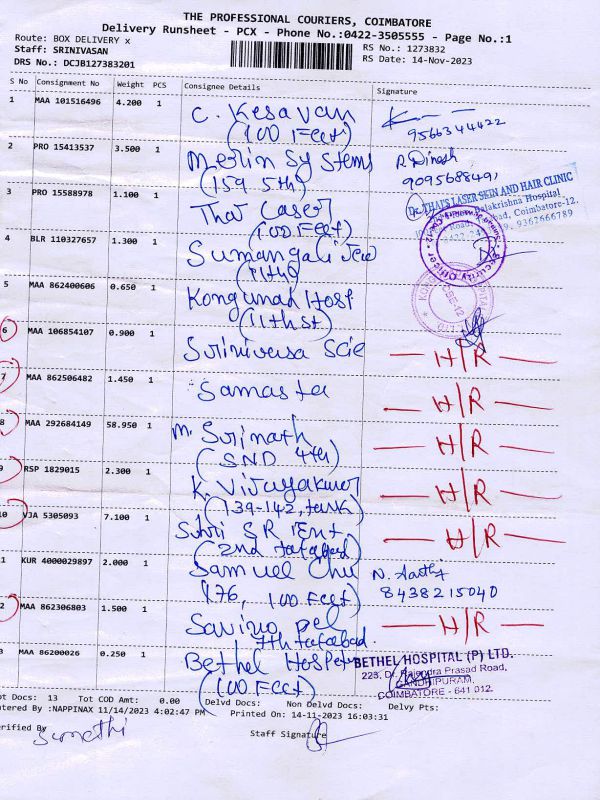 THE PROFESSIONAL COURIERS, COIMBATORE
Delivery Runsheet - PCX - Phone No.:0422-3505555 - Page No.:1
Route: BOX DELIVERY x
RS No.: 1273832
Staff: SRINIVASAN
RS Date: 14-Nov-2023
DRS No.: DCJB127383201
S No Consignment No Weight PCS Consignee Details Signature
1 MAA 101516496 4.200 1 C. Kesavan
(100 Feet) 9566344422
2 PRO 15413537 3.500 1 Merlin Systems R. Dinesh
(159 5th) 9095688491
3 PRO 15588978 1.100 1 Thai Laser
THAI'S LASER SKIN AND HAIR CLINIC
(100 Feet)
Coimbatore-12.
9362666789
4 BLR 110327657 1.300 1 Sumangali Jew
(11th)
Security Officer
5 MAA 862400606 0.650 1 Kongunad Hosp
(11th st)
6 MAA 106854107 0.900 1 Srinivasa Scie H/R
7 MAA 862506482 1.450 1 Samasta H/R
8 MAA 292684149 58.950 1 M. Srinath H/R
(SND 4th)
9 RSP 1829015 2.300 1 K. Vijayakumar H/R
(139-142, tank)
10 VJA 5305093 7.100 1 Shri SR Ent H/R
(2nd tatabad)
1 KUR 4000029897 2.000 1 Samuel Chu N. Aarthy
(76, 100 Feet) 8438215040
2 MAA 862306803 1.500 1 Savino pel H/R
7th tatabad.
3 MAA 86200026 0.250 1 Bethel Hospital
(100 Feet)
BETHEL HOSPITAL (P) LTD.
223, Dr. Rajendra Prasad Road,
GANDHIPURAM,
COIMBATORE - 641 012.
ot Docs: 13 Tot COD Amt: 0.00 Delvd Docs: Non Delvd Docs: Delvy Pts:
ntered By :NAPPINAX 11/14/2023 4:02:47 PM Printed On: 14-11-2023 16:03:31
erified By Sumathi Staff Signature